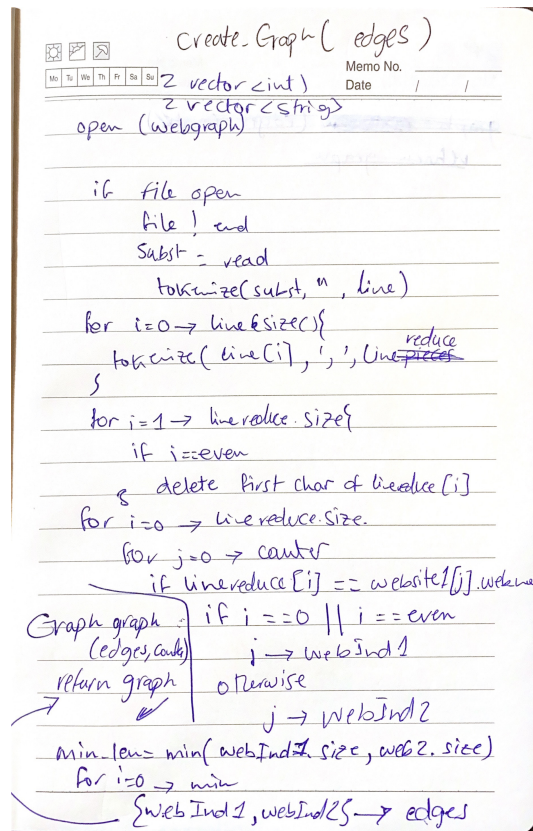 Create_Graph( edges )
Mo Tu We Th Fr Sa Su
Memo No.
Date / /
2 vector <int>
2 vector <string>
open (webgraph)
if file open
file ! end
Subst = read
tokenize(subst, " , line)
for i=0 → line size(){
tokenize( line[i] , ',', line pieces reduce
}
for i=1 → linereduce.size{
if i==even
delete first char of linereduce [i]
}
for i=0 → linereduce.size.
for j=0 → counter
if linereduce[i] == website1[j].webname
if i ==0 || i ==even
j → webInd1
otherwise
j → webInd2
Graph graph
(edges, counter)
return graph
min_len= min( webInd1. size, web2. size)
for i=0 → min
{webInd1, webInd2} → edges